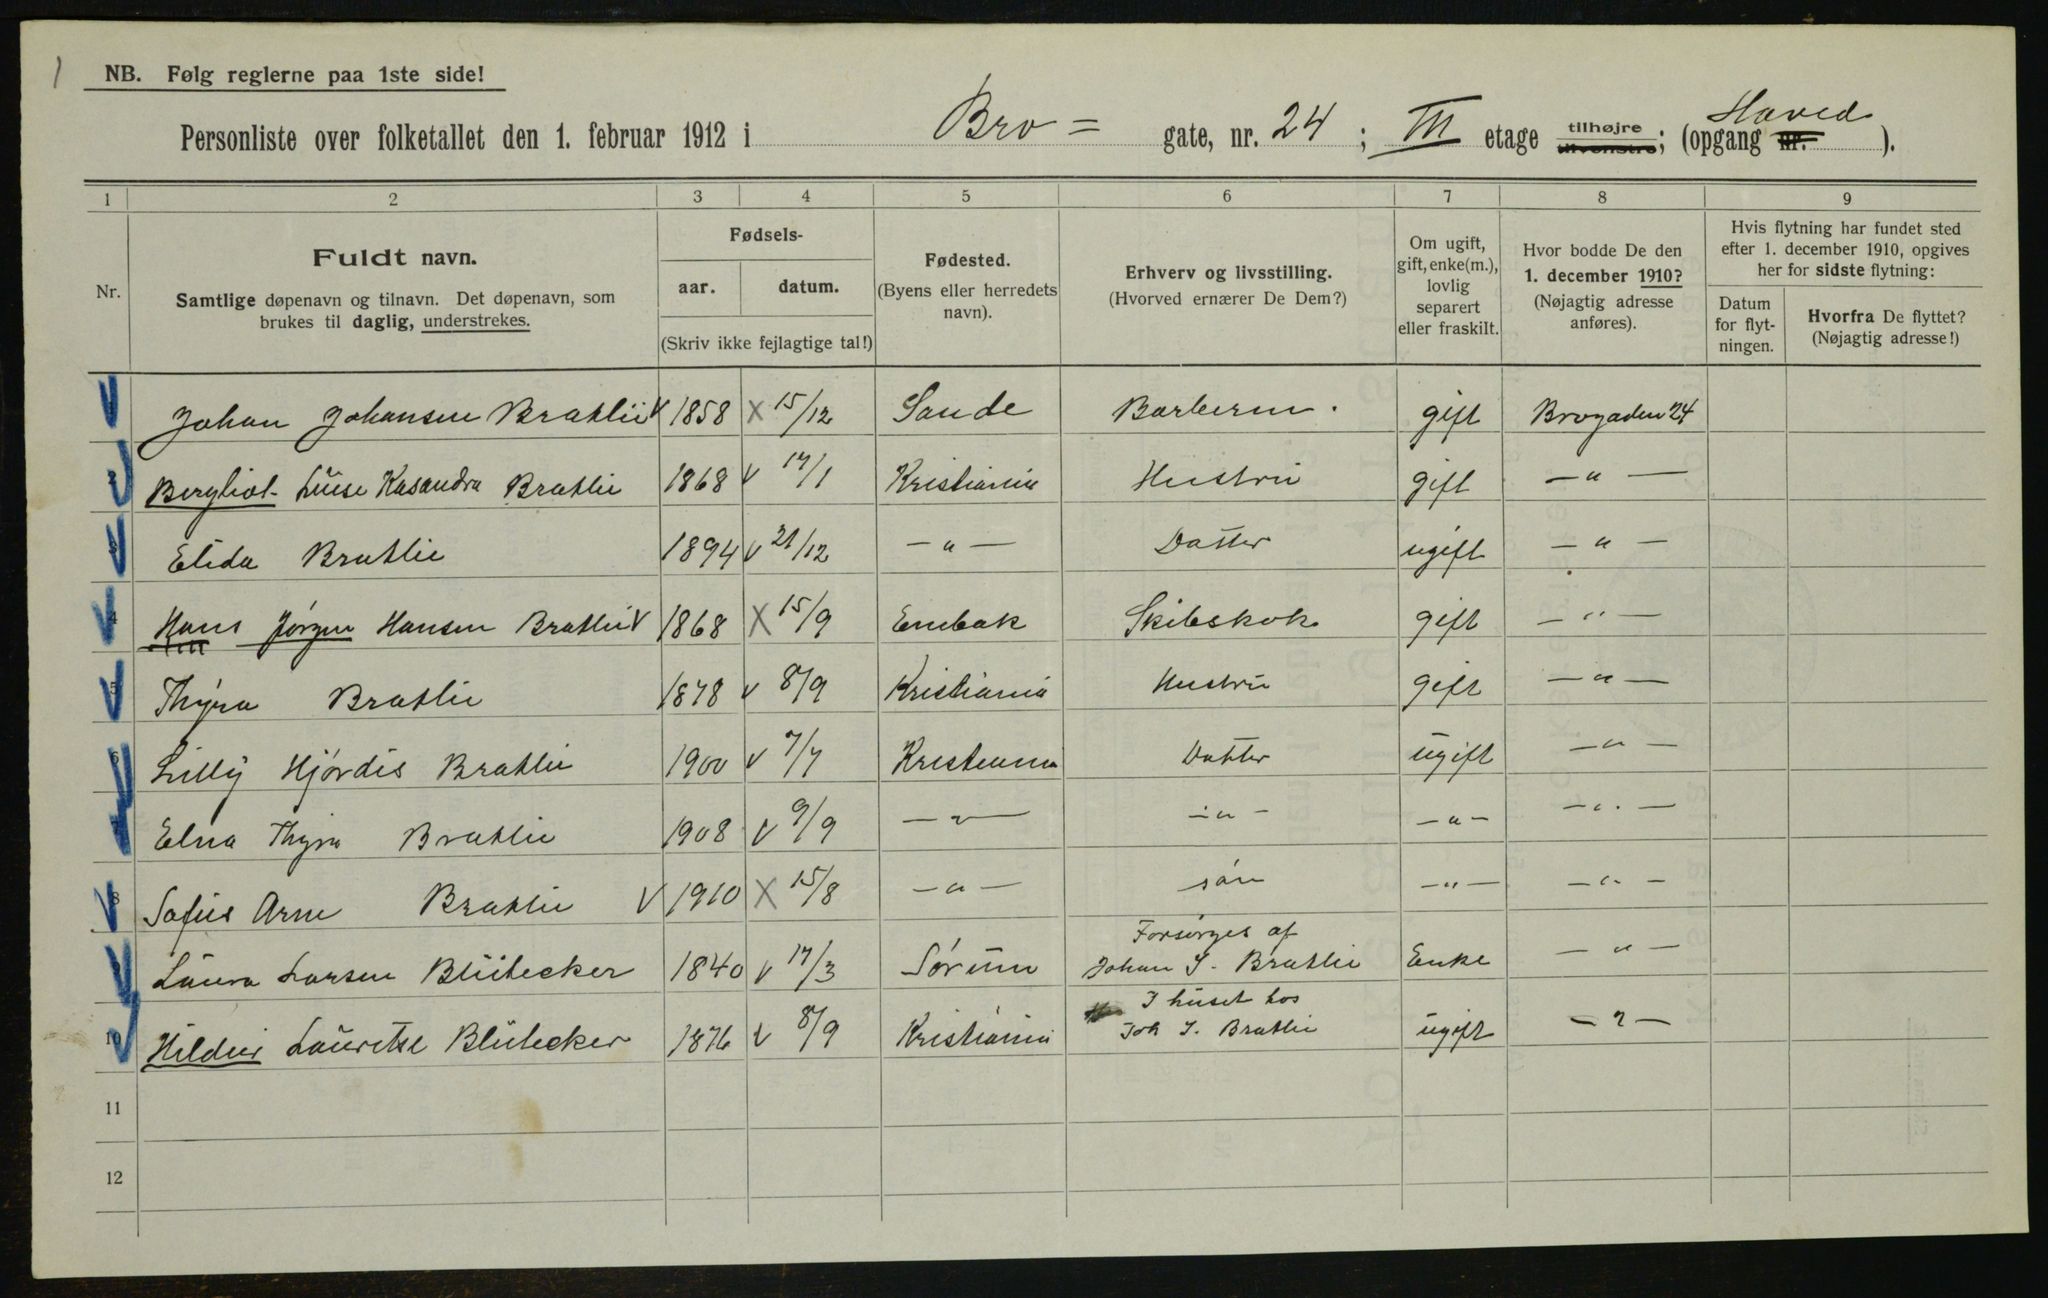 1
NB. Følg reglerne paa 1ste side!
Personliste over folketallet den 1. februar 1912 i Bro= gate, nr. 24 ; III etage tilhøjre tilvenstre; (opgang nr. Hoved ).
1 2 3 4 5 6 7 8 9
Nr. Fuldt navn. Samtlige døpenavn og tilnavn. Det døpenavn, som brukes til daglig, understrekes.
Fødsels- aar. datum. (Skriv ikke fejlagtige tal!)
Fødested. (Byens eller herredets navn).
Erhverv og livsstilling. (Hvorved ernærer De Dem?)
Om ugift, gift, enke(m.), lovlig separert eller fraskilt.
Hvor bodde De den 1. december 1910? (Nøjagtig adresse anføres).
Hvis flytning har fundet sted efter 1. december 1910, opgives her for sidste flytning:
Datum for flyt-ningen. Hvorfra De flyttet? (Nøjagtig adresse!)
Johan Johansen Bratlie 1858 15/12 Sande Barberer. gift Brogaden 24
2 Bergliot Luise Kasandra Bratlie 1868 17/1 Kristiania Hustru gift — " —
3 Elida Bratlie 1894 21/12 — " — Datter ugift — " —
4 Hans Jörgen Hansen Bratlie 1868 15/9 Enebak Skibskok gift — " —
5 Thyra Bratlie 1878 8/9 Kristiania Hustru gift — " —
6 Lilly Hjördis Bratlie 1900 7/7 Kristiania Datter ugift — " —
7 Elna Thyra Bratlie 1908 9/9 — " — — " — — " — — " —
8 Sofus Arne Bratlie 1910 15/8 — " — sön — " — — " —
9 Laura Larsen Blütecker 1840 17/3 Sörum Forsörges af Johan J. Bratlie Enke — " —
10 Hildur Lauretse Blütecker 1876 8/9 Kristiania I huset hos Joh J. Bratlie ugift — " —
11
12